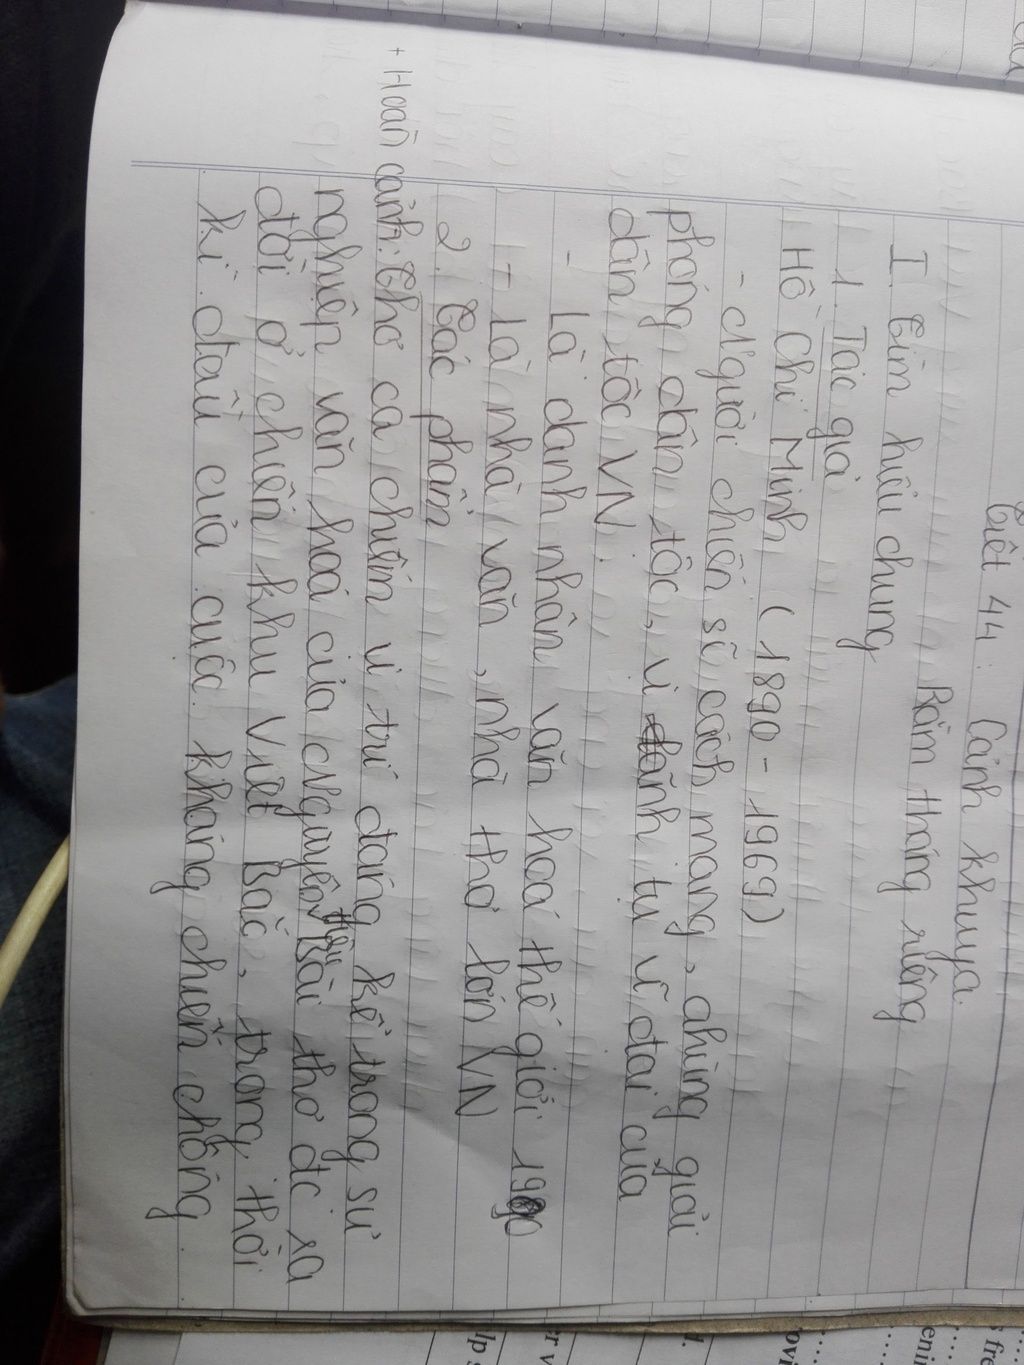 Tiết 44: Cảnh khuya
Rằm tháng riêng
I. Tìm hiểu chung
1. Tác giả
Hồ Chí Minh (1890 - 1969)
- Người chiến sĩ cách mạng, anh hùng giải
phóng dân tộc, vị lãnh tụ vĩ đại của
dân tộc VN.
- Là danh nhân văn hoá thế giới 1990
- Là nhà văn, nhà thơ lớn VN
2. Tác phẩm
+ Hoàn cảnh: Thơ ca chiếm vị trí đáng kể trong sự
nghiệp văn hoá của Nguyễn Hai bài thơ đc ra
đời ở chiến khu Việt Bắc, trong thời
kì đầu của cuộc kháng chiến chống